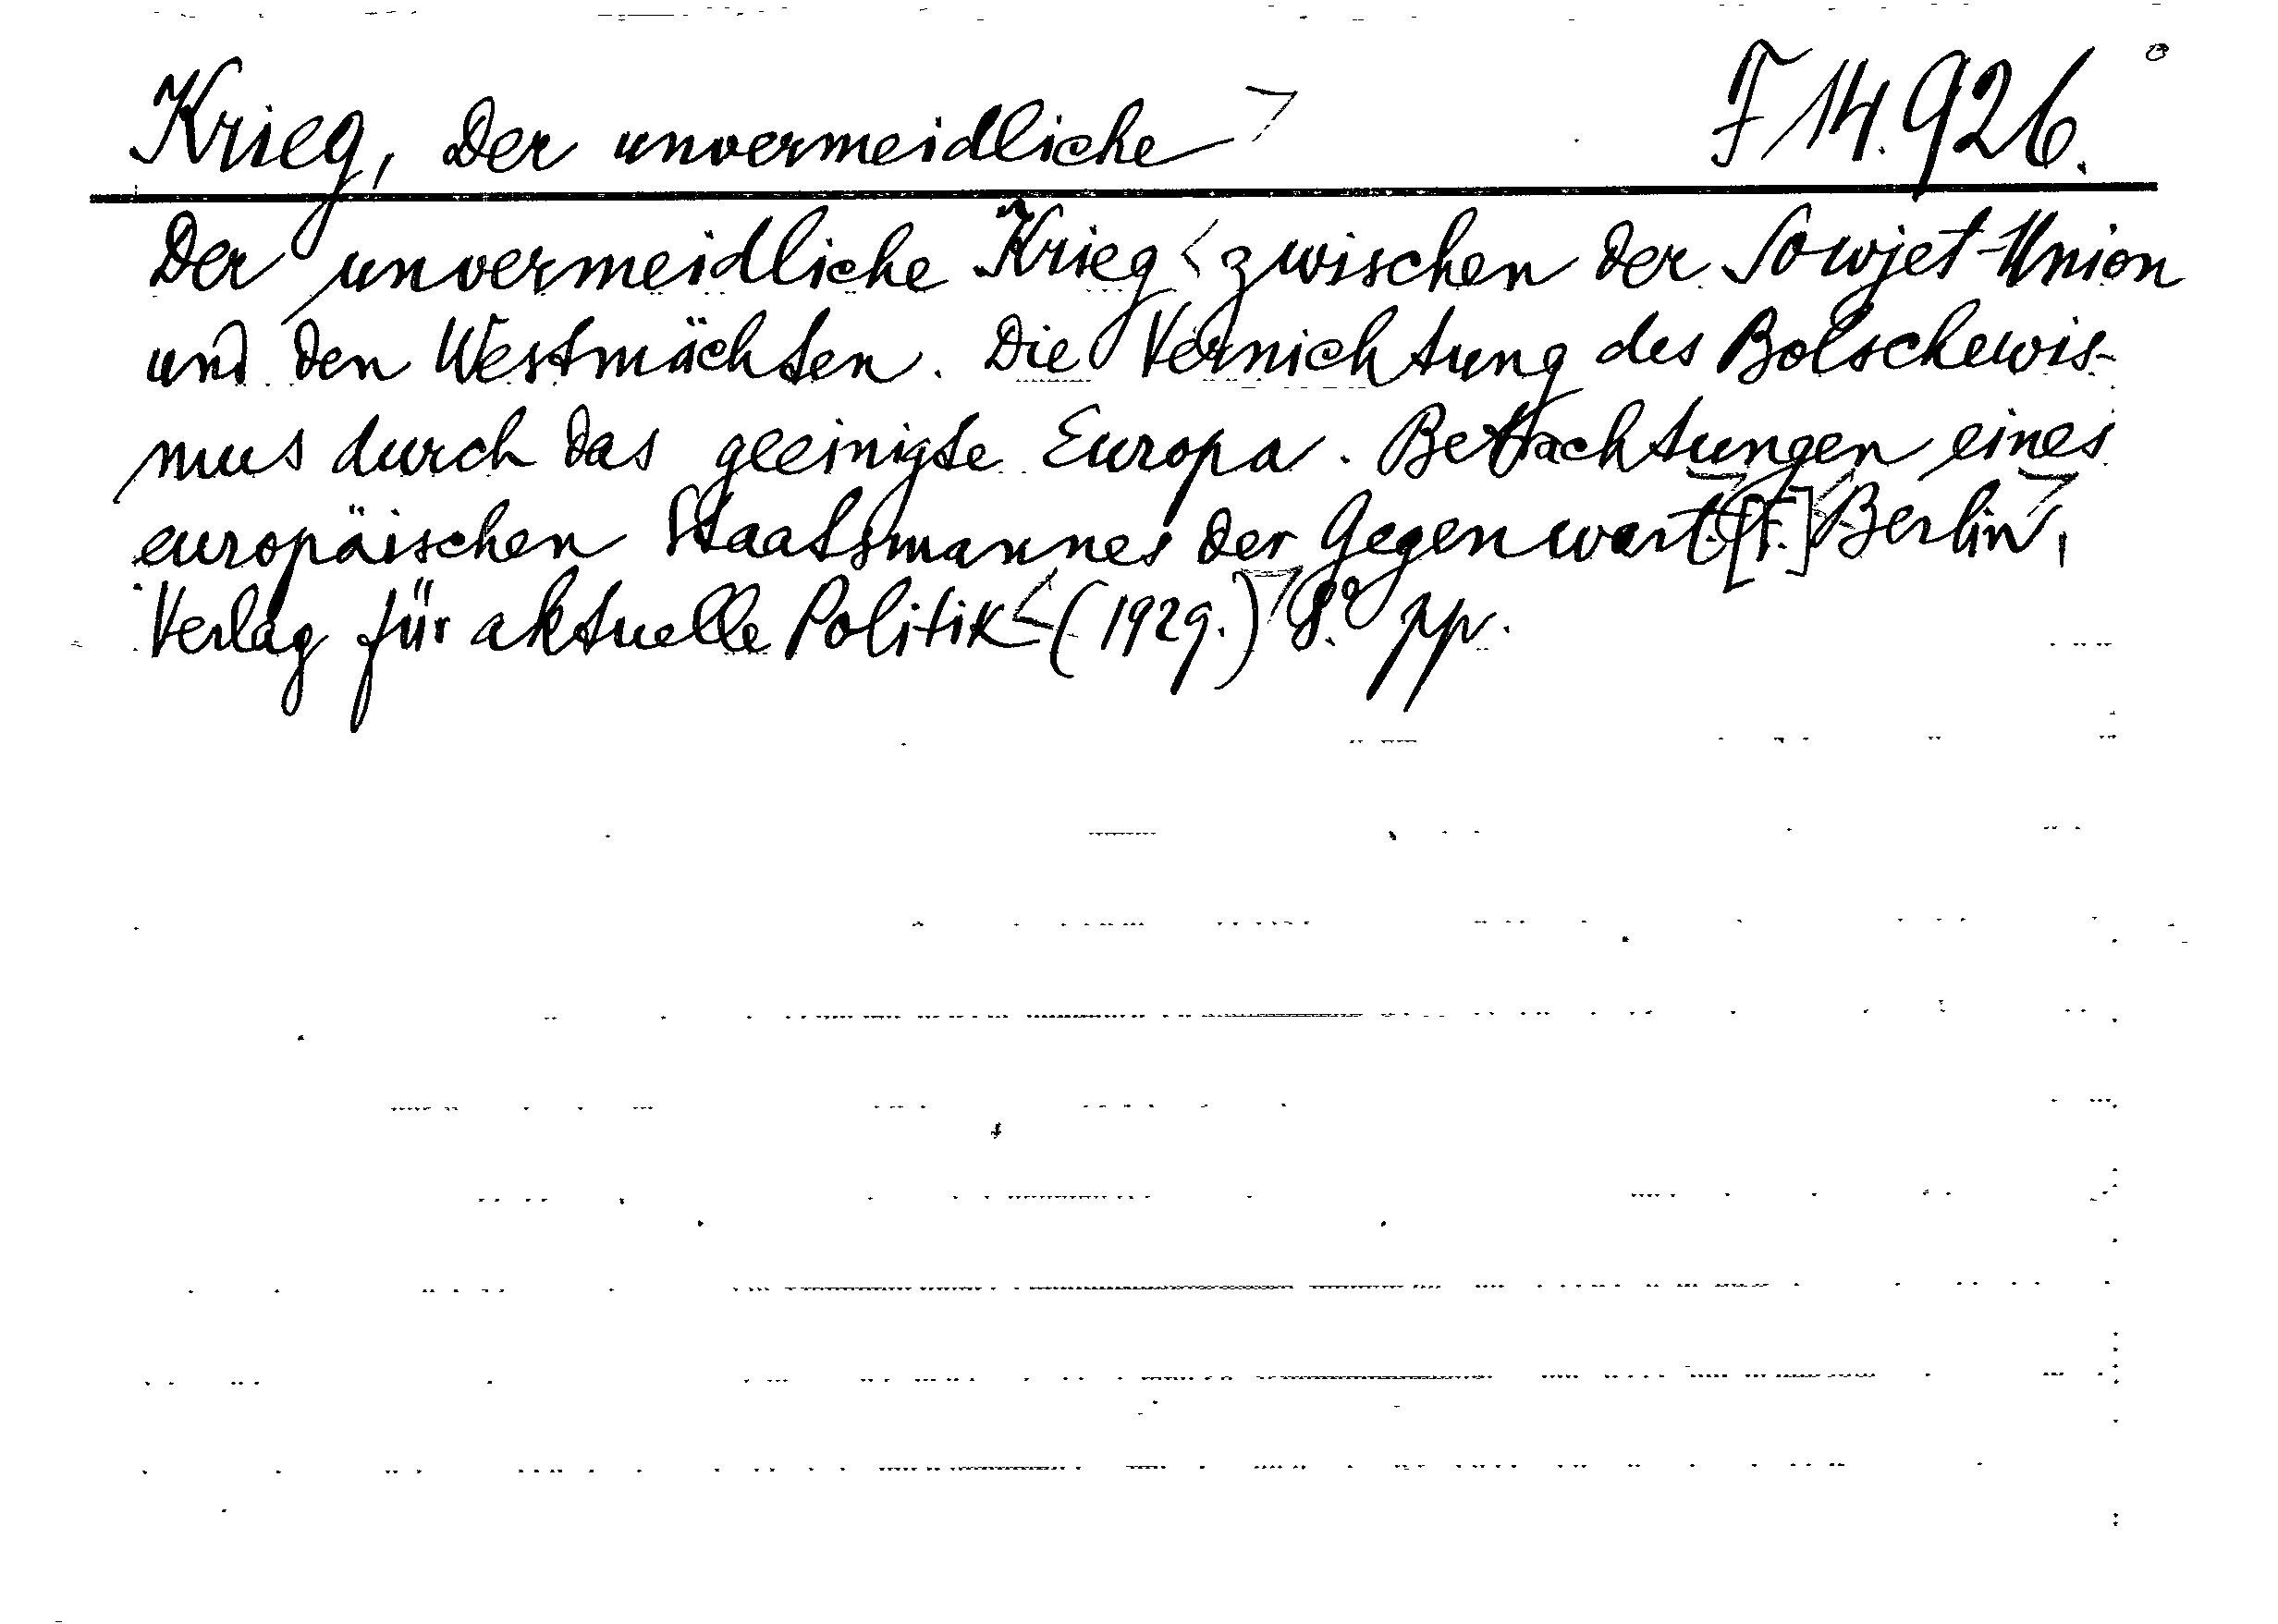 Krieg, Der unvermeidliche F 14.926.
Der unvermeidliche Krieg zwischen der Sowjet-Union
und den Westmächten. Die Vernichtung des Bolschewis-
mus durch das geeinigte Europa. Betrachtungen eines
europäischen Staatsmannes der Gegenwart. [F.] Berlin,
Verlag für aktuelle Politik (1929.) 8.° pp.